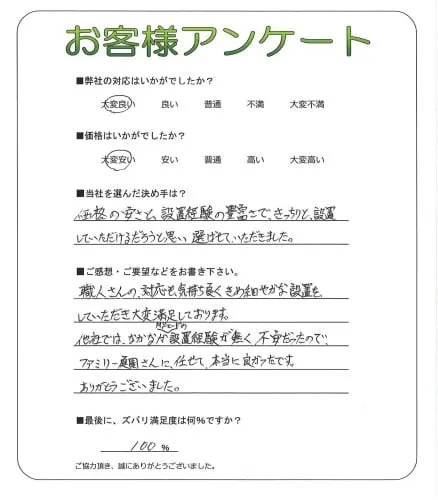 お客様アンケート
■弊社の対応はいかがでしたか？
大変良い 良い 普通 不満 大変不満
■価格はいかがでしたか？
大変安い 安い 普通 高い 大変高い
■当社を選んだ決め手は？
価格の安さと、設置経験の豊富さで、きっちりと、設置
していただけるだろうと思い 選ばせていただきました。
■ご感想・ご要望などをお書き下さい。
職人さんの、対応も気持ち良く きめ細やかな 設置を、
していただき大変満足しております。
他社では、なかなか 設置経験が無く 不安だったので、
ファミリー庭園さんに、任せて、本当に良かったです。
ありがとうございました。
■最後に、ズバリ満足度は何%ですか？
100 %
ご協力頂き、誠にありがとうございました。